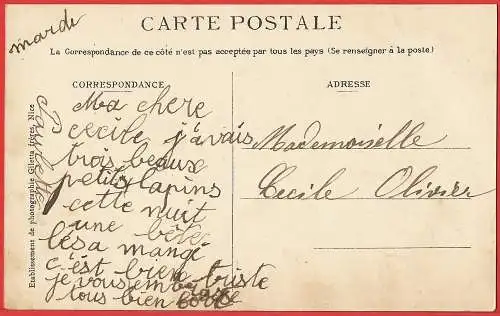 mardi
CARTE POSTALE
La Correspondance de ce côté n'est pas acceptée par tous les pays (Se renseigner à la poste.)
CORRESPONDANCE
Ma chere
cecile j'avais
trois beaux
petits lapins
cette nuit
une bête
les a mangé
c'est bien triste
je vous embrasse
tous bien
Paulette
ADRESSE
Mademoiselle
Cecile Olivier
Etablissement de photographie Giletta frères, Nice